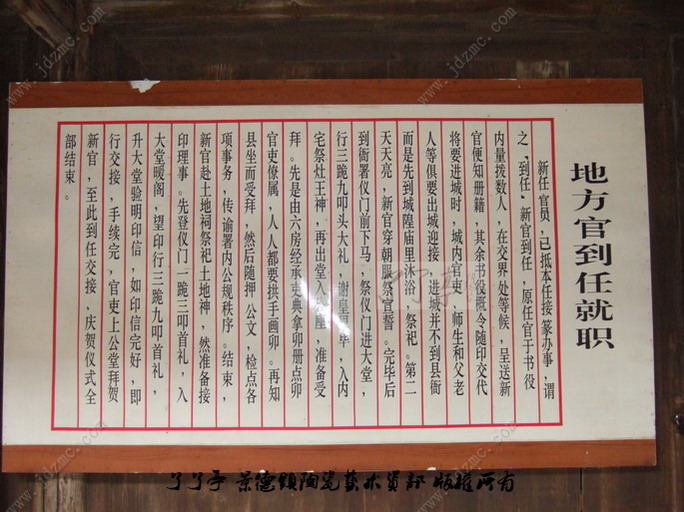 地方官到任就职
新任官员,已抵本任接篆办事,谓
之“到任”。新官到任,原任官于书役
内量拨数人,在交界处等候,呈送新
官便知册籍,其余书役概令随印交代
将要进城时,城内官吏、师生和父老
人等俱要出城迎接,进城并不到县衙
而是先到城隍庙里沐浴,祭祀。第二
天天亮,新官穿朝服祭宣誓。完毕后
到衙署仪门前下马,祭仪门进大堂,
行三跪九叩头大礼,谢皇恩毕,入内
宅祭灶王神,再出堂入公座,准备受
拜。先是由六房经承吏典拿卯册点卯
官吏僚属,人人都要拱手画卯。再知
县坐而受拜,然后随押公文,检点各
项事务,传谕署内公规秩序。结束,
新官赴土地祠祭祀土地神,然准备接
印理事。先登仪门一跪三叩首礼,入
大堂暖阁,望印行三跪九叩首礼,
升大堂验明印信,如印信完好,即
行交接,手续完,官吏上公堂拜贺
新官,至此到任交接,庆贺仪式全
部结束。
了了亭 景德镇陶瓷艺术资讯 版权所有
www.jdzmc.com